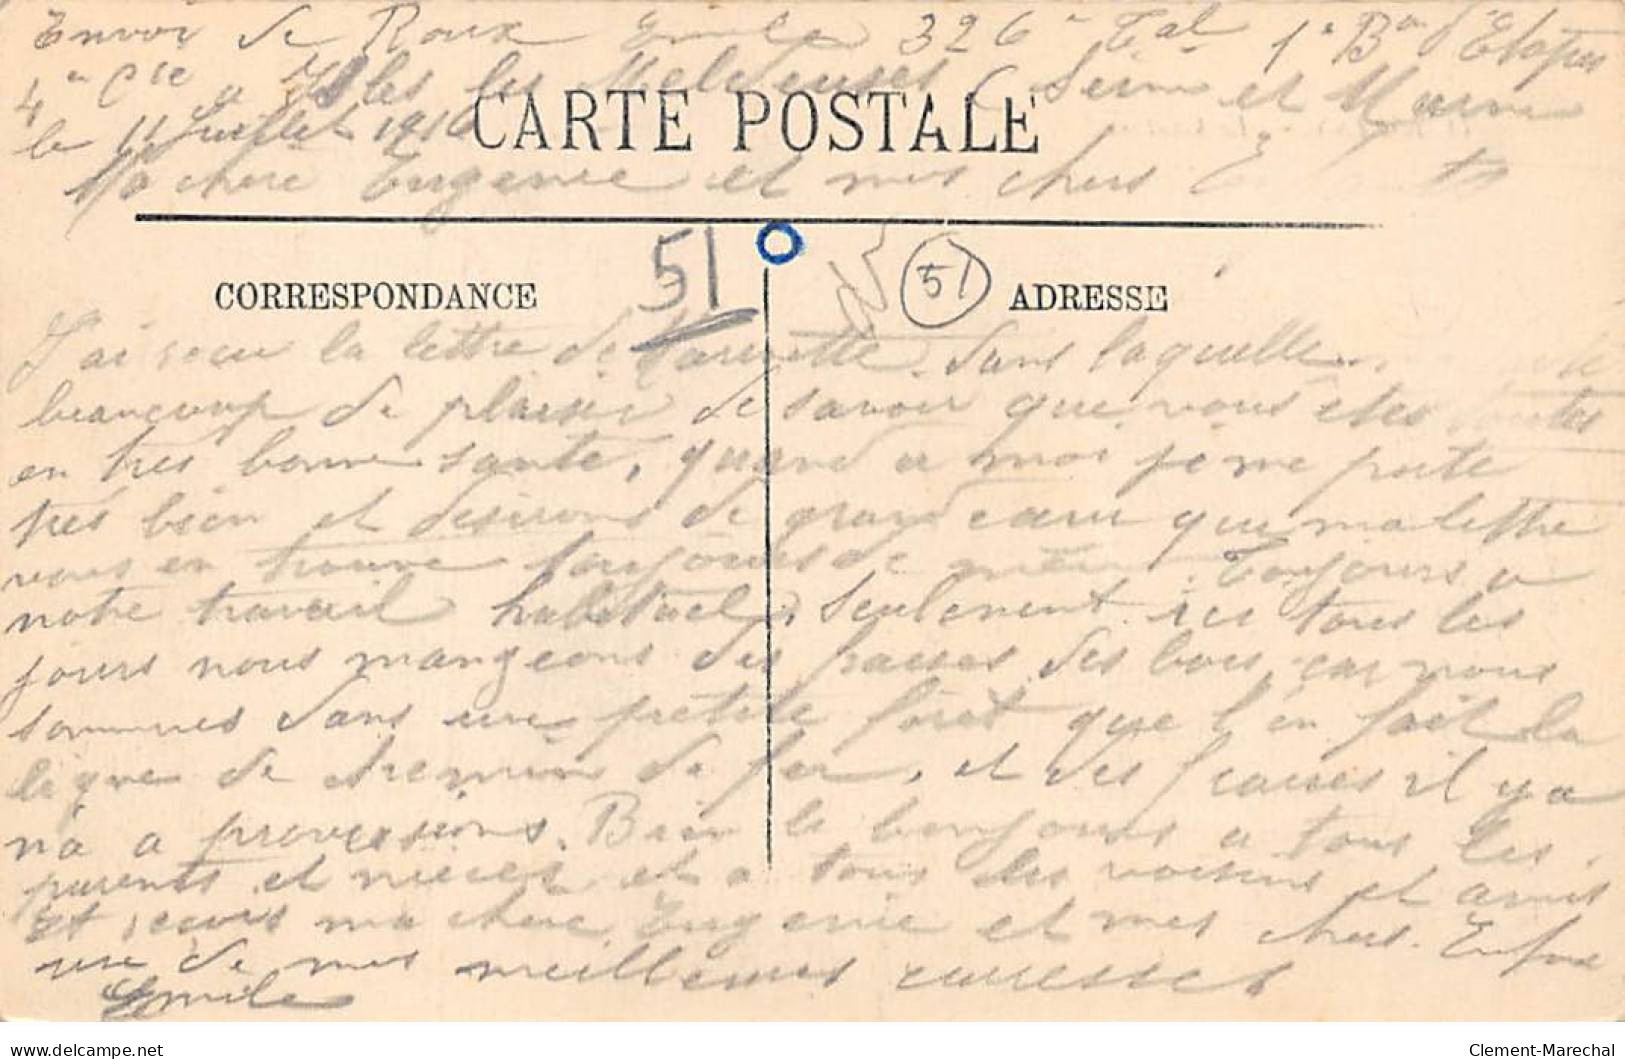 Envoi de Roux Emile 326e Tal 1e Bon d'Etapes
4e Cie a Isles les Meldeuses (Seine et Marne
le 11 Juillet 1916
CARTE POSTALE
Ma chere Eugenie et mes chers
51
51
CORRESPONDANCE
ADRESSE
J'ai recu la lettre de dans laquelle
beaucoup de plaisir de savoir que vous etes toutes
en tres bonne sante, quand a moi je me porte
tres bien et desirons de grand cœur que ma lettre
vous en trouve toujours de meme. Toujours a
notre travail habituel, seulement ici tous les
jours nous mangeons des fraises des bois car nous
sommes dans une petite foret que l'on fait la
ligne de chemin de fer, et des fraises il y a
na a provisions. Bien le bonjours a tous les
parents et nieces et a tous les voisins et amis
Et recevs ma chere Eugenie et mes chers Enfants
une de mes meilleures caresses
Emile
Clement-Marechal